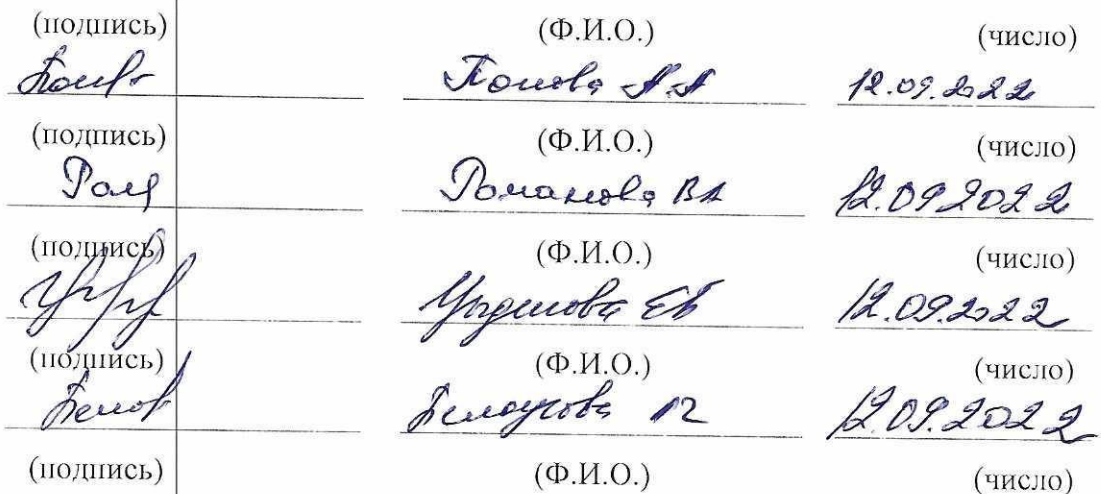 (подпись) (Ф.И.О.) (число)
Попова А.А 12.09.2022
(подпись) (Ф.И.О.) (число)
Ром Романова ВА 12.09.2022
(подпись) (Ф.И.О.) (число)
Цыденова ЕБ 12.09.2022
(подпись) (Ф.И.О.) (число)
Белоусова 12.09.2022
(подпись) (Ф.И.О.) (число)